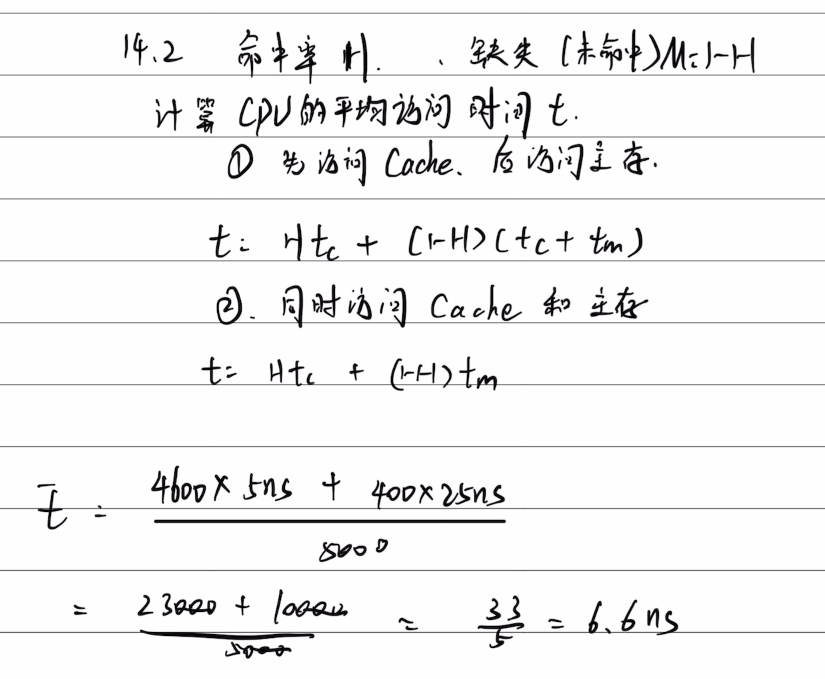 14.2 命中率 H. 、缺失(未命中)M=1-H
计算 CPU的平均访问时间 t.
① 先访问 Cache、后访问主存.
t= Htc + (1-H)(tc + tm)
②. 同时访问 Cache 和 主存
t= Htc + (1-H)tm
t̄ = 4600×5ns + 400×25ns / 5000
= 23000 + 10000 / 5000 = 33/5 = 6.6ns